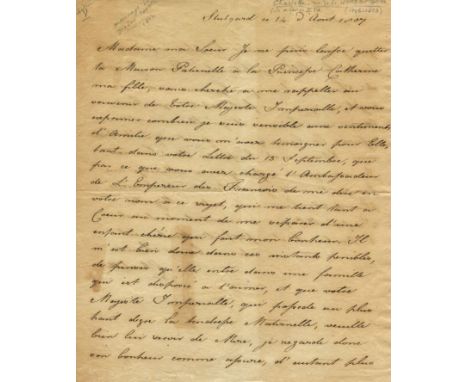 Stutgard ce 14 d'Aout 1807
Madame ma Soeur Je ne puis laisser quitter
la Maison Paternelle à la Princesse Catherine
ma fille, sans chercher a me rappeller au
souvenir de Votre Majesté Imperialle, et vous
exprimer combien je suis sensible aux sentiments
d'Amitié que vous m'avez temoignés pour Elle,
tant dans votre Lettre du 13 September, que
par ce que vous avez chargé l'Ambassadeur
de L'Empereur des Francois de me dire en
votre nom a ce sujet, qui me tient tant a
Coeur au moment de me separer d'une
enfant chérie qui fait mon bonheur. Il
m'est bien doux dans ces instants penibles,
de penser qu'elle entre dans une famille
qui est disposée a l'aimer, et que votre
Majesté Imperialle, qui possede au plus
haut degré la tendresse Maternelle, veuille
bien lui servir de Mere, je regarde donc
son bonheur comme assuré, d'autant plus